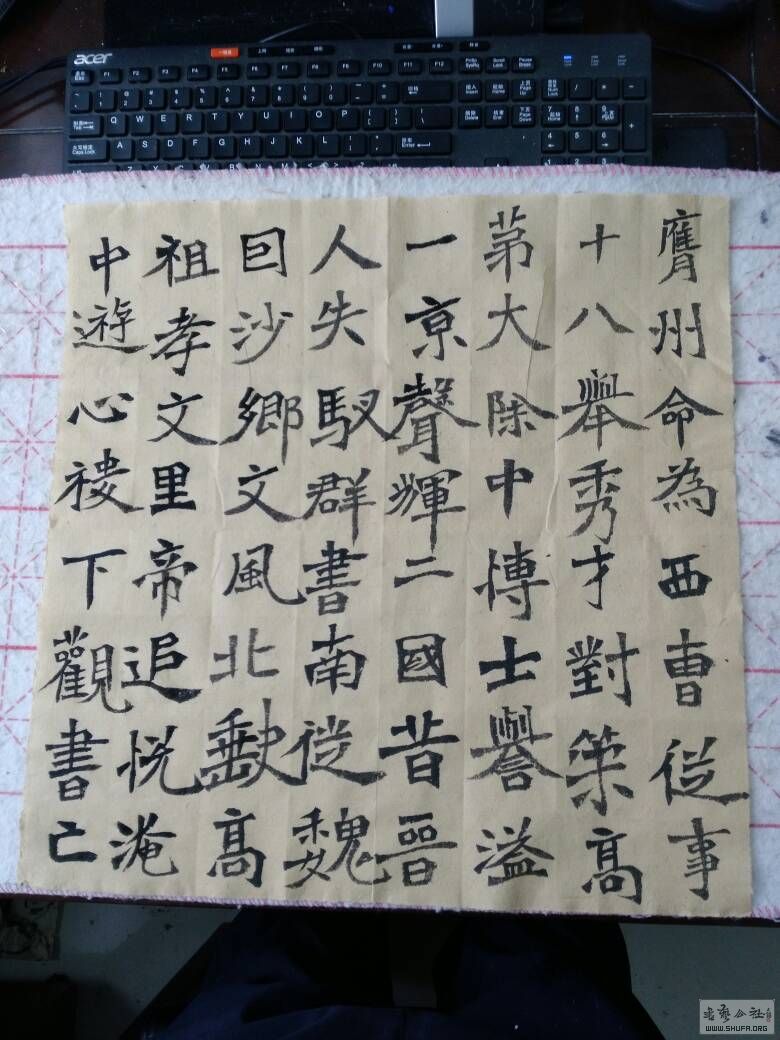 acer
膺州命為西曹從事
十八舉秀才對策高
苐大除中博士譽溢
一京聲輝二國昔晉
人失馭群書南從魏
囙沙鄉文風北高
祖孝文里帝追恱淹
中遊心下觀書亡
书艺公社
WWW.SHUFA.ORG